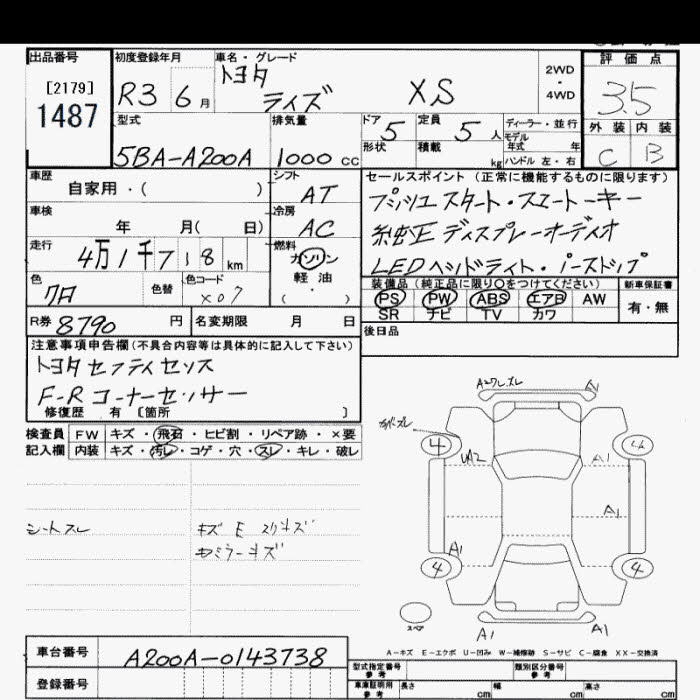 出品番号 初度登録年月 車名・グレード 評価点
[2179] R3 6月 トヨタ 2WD・4WD 3.5
1487 ライズ XS
外装 内装
型式 排気量 ドア 5 定員 5人 ディーラー・並行 C B
モデル年式 年
5BA-A200A 1000cc 形状 積載 kg ハンドル 左・右
車歴 シフト セールスポイント (正常に機能するものに限ります)
自家用・( ) AT プッシュスタート・スマートキー
車検 冷房
年 月( 日) AC 純正ディスプレーオーディオ
走行 燃料
4万1千718km ガソリン LEDヘッドライト・
軽油
色 色替 色コード ( ) 装備品(純正品に限り○をつけてください) 新車保証書
クロ X07 PS PW ABS エアB AW 有・無
SR ナビ TV カワ
R券 8790円 名変期限 月 日 後日品
注意事項申告欄(不具合内容等は具体的に記入して下さい)
トヨタセフティセンス
F-Rコーナーセンサー
修復歴 有 〔箇所 〕
検査員 FW キズ・飛石・ヒビ割・リペア跡・×要
記入欄 内装 キズ・汚レ・コゲ・穴・スレ・キレ・破レ
シートスレ キズ E スリキズ
ミラーキズ
A1
4 4
A1
A1
A1
4 4
スペア
A1 A1
A-キズ E-エクボ U-凹み W-補修跡 S-サビ C-腐食 XX-交換済
車台番号 A200A-0143738
型式指定番号 参考 類別区分番号 参考
登録番号 車庫証明用 参考 長さ cm 幅 cm 高さ cm